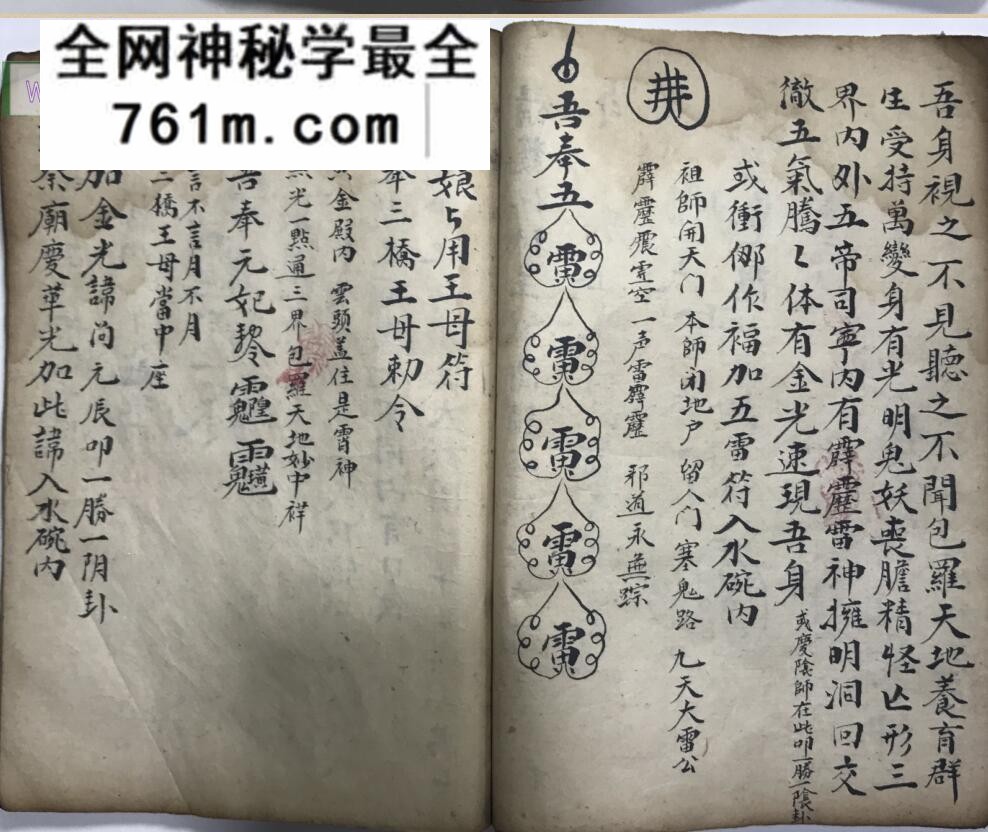 全网神秘学最全
761m.com
W
吾身視之不見聽之不聞包羅天地養育群
生受持萬變身有光明鬼妖喪膽精怪亾形三
界內外五帝司寧內有霹靂雷神擁明洞回交
徹五氣騰〻体有金光速現吾身 或慶陰師在此叩一勝一陰卦
或衝作福加五雷符入水碗內
祖師開天门 本師闭地户 留人门塞鬼路 九天大雷公
霹靂震空一声雷霹靂 邪道永無踪
井
吾奉五
雷
雷
雷
雷
雷
娘用王母符
奉三橋王母勅令
金殿內 雲頭盖住是霄神
光一點通三界包羅天地妙中祥
吾奉元妃
言不言月不月
三橋王母當中座
加金光諱尚元辰叩一勝一阴卦
祭廟慶華光加此諱入水碗內